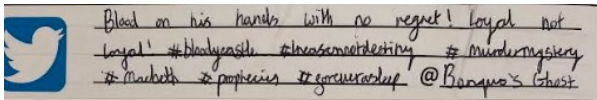 Blood on his hands with no regret! Loyal not
Loyal! #bloodycastle #treasonnotdestiny # murdermystery
# Macbeth # prophecies # foreverasleep @Banquo's Ghost